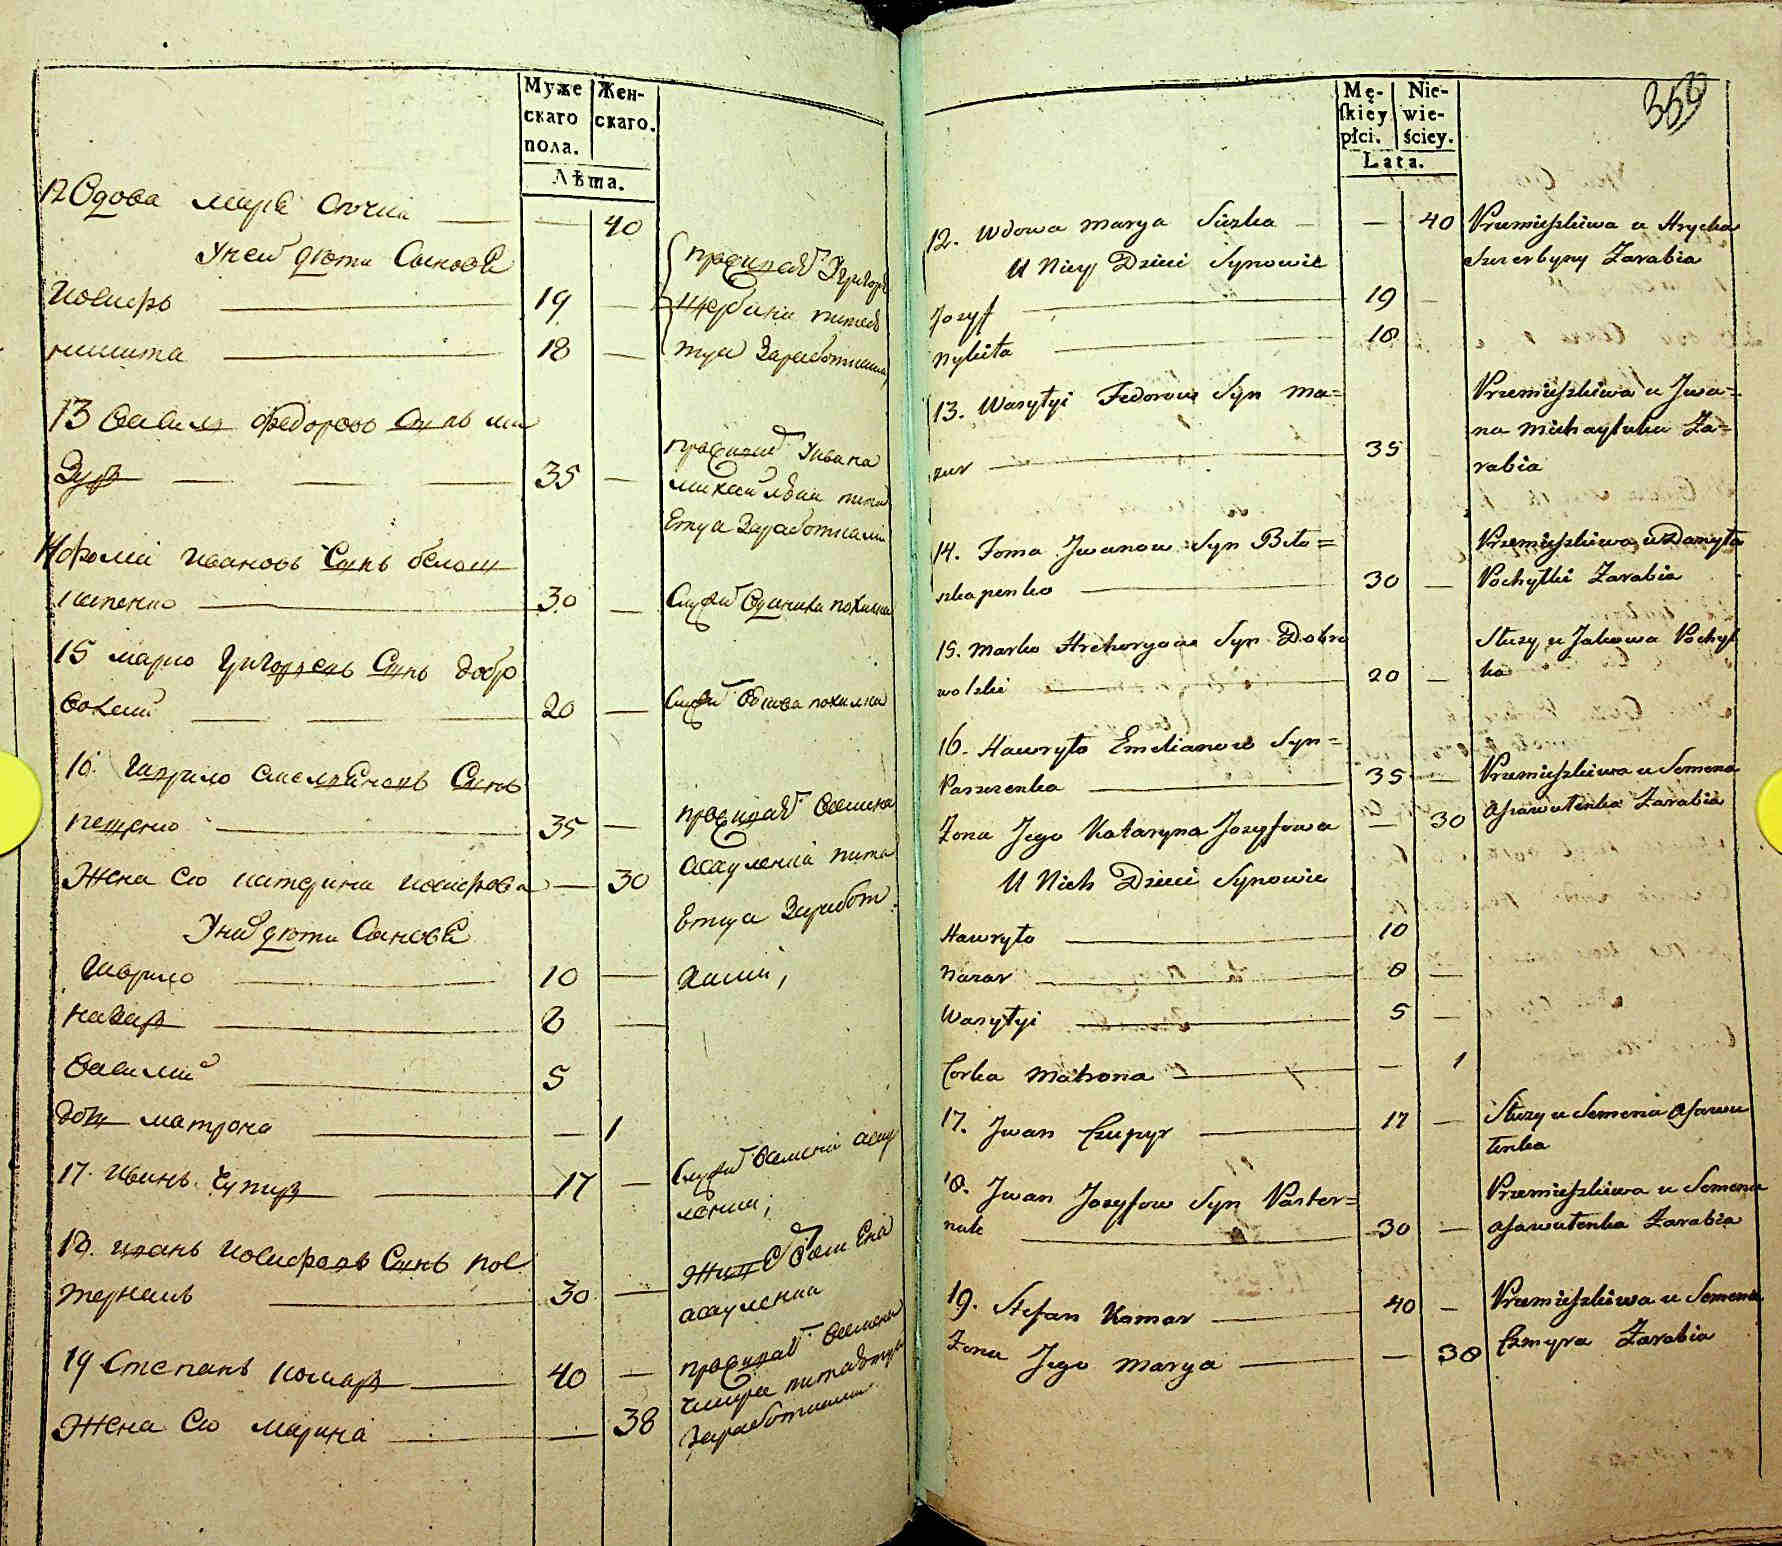 Муже Жен-
скаго скаго.
пола.
Лѣта.
12 Вдова марія — — 40
Унеи дѣти Синовѣ
Иосифъ — 19 —
никита — 18 —
Проживаетъ Угригорія
Щербини питает
туя Заработками
13 Василь Федоровъ Синъ ма
Зуръ — — — 35 —
Проживаетъ Уивана
михаилвки пита
Етуя Заработками
14 фома Ивановъ Синъ белош
капенко — 30 —
15 марко Григориевъ Синъ добро
волский — — — 20 —
16. Гаврило Емелияновъ Синъ
пащенко — 35 —
Проживаетъ Всемена
Асауленка пита
Етуя Заработ
ками,
Жена Его катерина Иосифова — 30
Унихъ дѣти Синовѣ
Гаврило — 10 —
Назаръ — 8 —
Василий — 5
дочь матрона — — 1
17. Иванъ Чупиръ — 17 —
Служитъ Всемена асау
ленка,
18. Иванъ Иосифовъ Синъ пос
тернакъ — 30 —
асауленка
19 Степанъ комаръ — 40 —
Проживаетъ Всемена
Заработками
Жена Его марина — — 38
359
Mę- Nie-
ſkiey wie-
płci. ściey.
Lata.
12. Wdowa Marya — — 40 Przemieszkiwa u Hrycka
Szczerbyny Zarabia
U Niey Dzieci Synowie
Jozyf — 19 —
Nykita — 18
13. Wasylyi Fedorow Syn Ma=
zur — 35
Przemieszkiwa u Jwa=
na Michayluka Za=
rabia
14. Foma Jwanow Syn Biło=
szkapenko — 30 —
Przemieszkiwa u Danyła
Pochyłki Zarabia
15. Marko Hrehoryow Syn Dobro
wolski — 20 —
Służy u Jakowa Pochył
ka
16. Hawryło Emelianow Syn=
Paszczenko — 35 — Przemieszkiwa u Semena
Asawulenka Zarabia
Zona Jego Kataryna Jozyfowa — 30
U Nich Dzieci Synowie
Hawryło — 10
Nazar — 8 —
Wasylyi — 5 —
Corka Matrona — — 1
17. Jwan Czupyr — 17 — Służy u Semena Asawu
lenka
18. Jwan Jozyfow Syn Paster=
nak — 30 —
Przemieszkiwa u Semena
Asawulenka Zarabia
19. Stefan Komar — 40 — Przemieszkiwa u Semena
Czmyra Zarabia
Zona Jego Marya — — 38